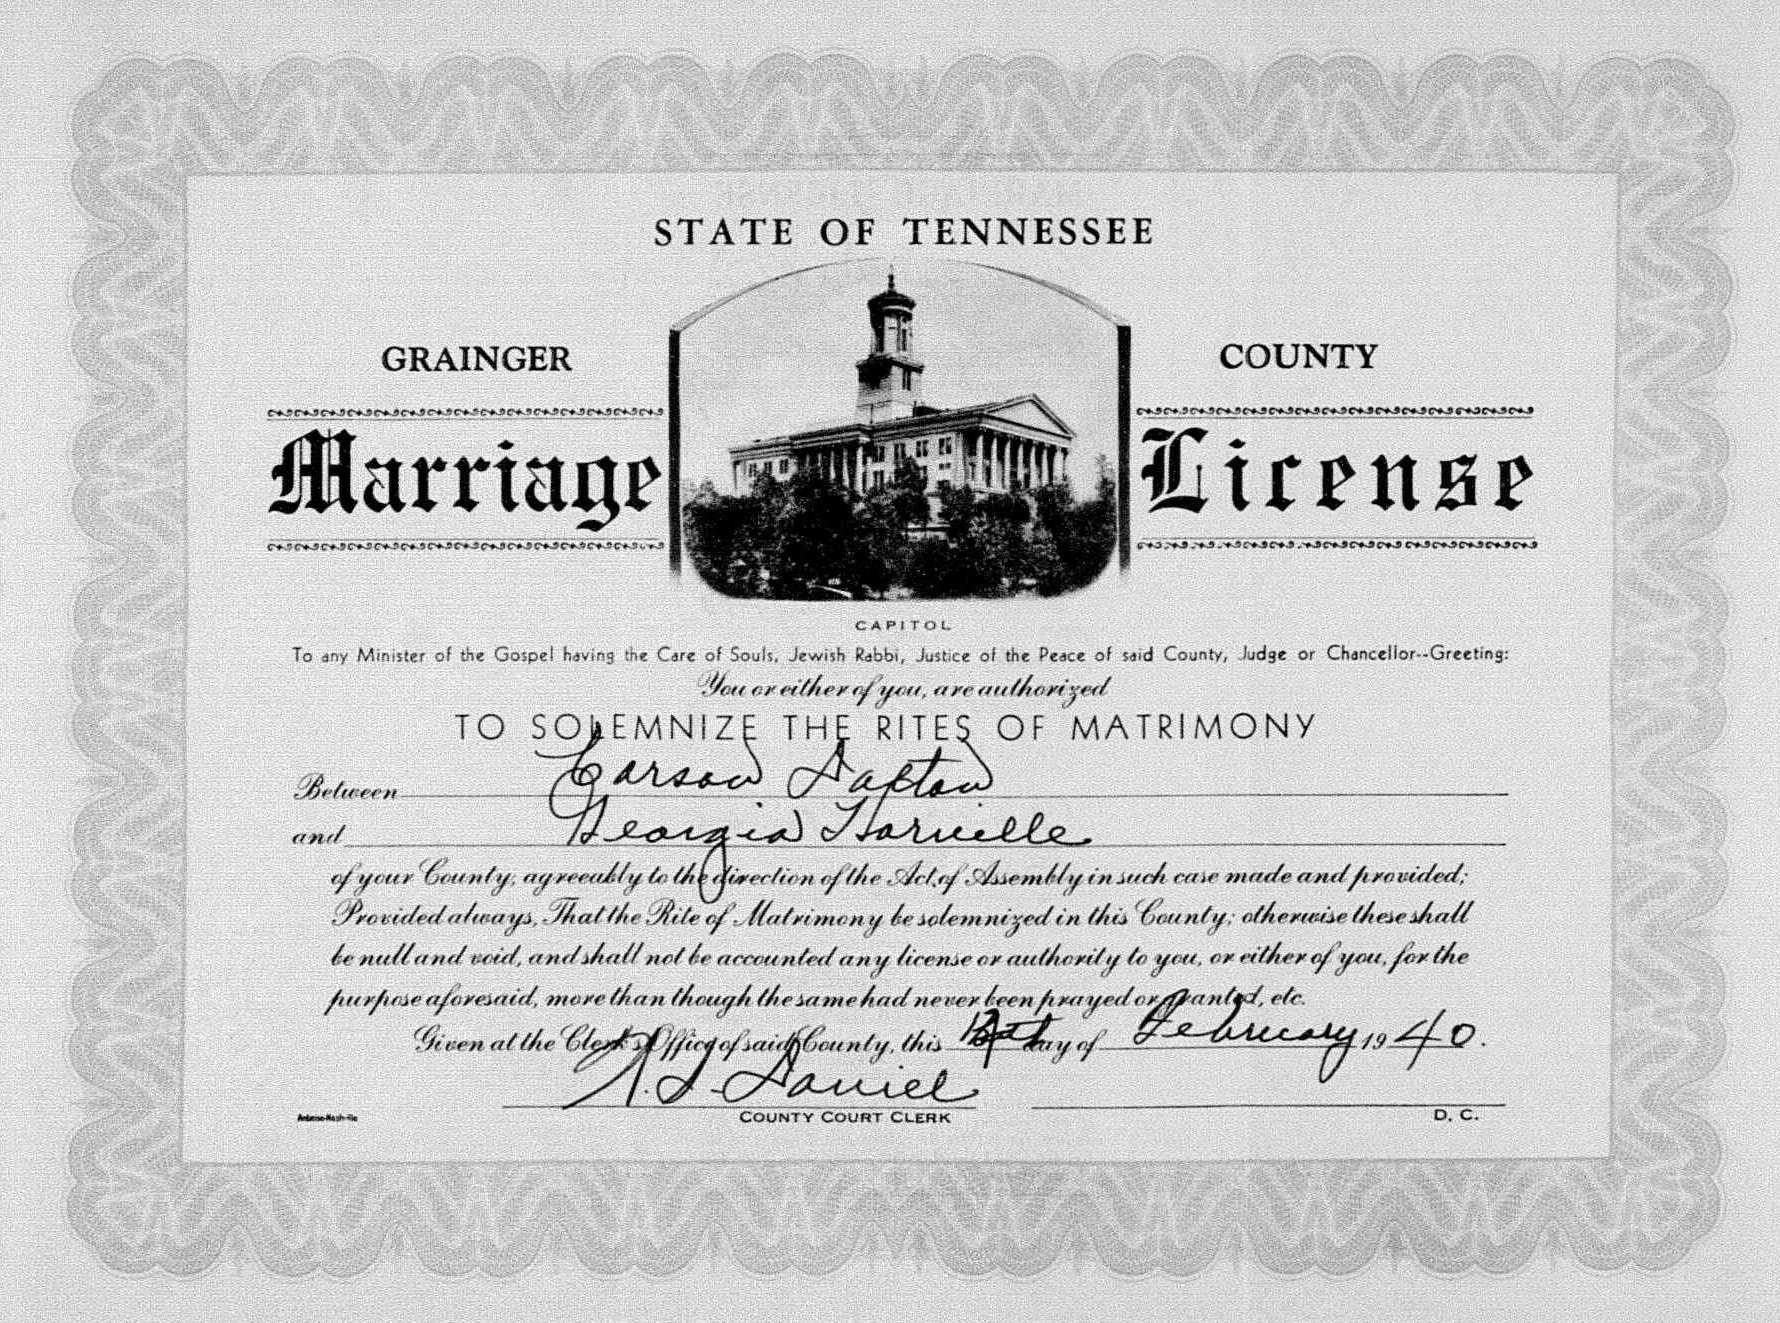 STATE OF TENNESSEE
GRAINGER COUNTY
Marriage License
CAPITOL
To any Minister of the Gospel having the Care of Souls, Jewish Rabbi, Justice of the Peace of said County, Judge or Chancellor--Greeting:
You or either of you, are authorized
TO SOLEMNIZE THE RITES OF MATRIMONY
Between Carson Dalton
and Georgia Harville
of your County, agreeably to the direction of the Act, of Assembly in such case made and provided;
Provided always, That the Rite of Matrimony be solemnized in this County; otherwise these shall
be null and void, and shall not be accounted any license or authority to you, or either of you, for the
purpose aforesaid, more than though the same had never been prayed or granted, etc.
Given at the Clerk's Office of said County, this day of February 1940.
Daniel
COUNTY COURT CLERK D. C.